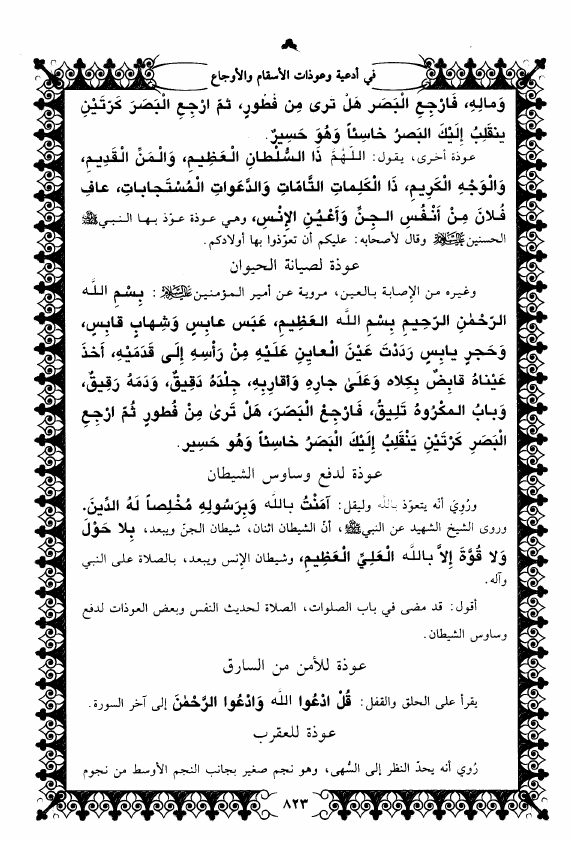 في أدعية وعوذات الأسقام والأوجاع
وَمالِهِ، فَارْجِعِ الْبَصَر هَلْ تَرى مِن فَطُورٍ، ثمّ ارْجِعِ الْبَصَرَ كَرَّتَيْنِ
ينقَلِبْ إلَيْكَ البَصرُ خاسِئاً وَهُوَ حَسِيرٌ.
عوذة أخرى، يقول: اللّهُمَّ ذَا السُّلْطانِ الْعَظِيمِ، وَالْمَنِّ الْقَدِيمِ،
وَالْوَجْهِ الْكَرِيمِ، ذَا الْكَلِماتِ التَّامّاتِ وَالدَّعَواتِ الْمُسْتَجاباتِ، عافِ
فُلانَ مِنْ أَنْفُسِ الْجِنِّ وَأَعْيُنِ الإِنْسِ، وهي عوذة عوّذ بها النبيّ ﷺ
الحسنين عليهما السلام وقال لأصحابه: عليكم أن تعوّذوا بها أولادكم.
عوذة لصيانة الحيوان
وغيره من الإصابة بالعين، مروية عن أمير المؤمنين عليه السلام: بِسْمِ الله
الرّحْمٰنِ الرّحِيمِ بِسْمِ الله العَظِيمِ، عَبَس عابِسٍ وَشِهابٍ قابِسٍ،
وَحَجرٍ يابِسٍ رَدَدْتَ عَيْنَ الْعايِنِ عَلَيْهِ مِنْ رَأْسِهِ إِلَى قَدَمَيْهِ، أخَذَ
عَيْناهُ قابِضٌ بِكِلاه وَعَلىٰ جارِهِ وَأَقارِبِهِ، جِلْدُهُ دَقِيقٌ، وَدَمَهُ رَقِيقٌ،
وَبابُ المكْرُوهَ تَلِيقُ، فَارْجِعْ الْبَصَرَ، هَلْ تَرىٰ مِنْ فُطورٍ ثُمّ ارْجِعِ
الْبَصَرِ كَرّتَيْنِ يَنْقَلِبْ إِلَيْكَ الْبَصَرُ خاسِئاً وَهُو حَسِير.
عوذة لدفع وساوس الشيطان
ورُوِيَ أنّه يتعوّذ بالله وليقل: آمَنْتُ بِالله وَبِرَسُولِهِ مُخْلِصاً لَهُ الدِّينَ.
وروى الشيخ الشهيد عن النبي ﷺ، أنّ الشيطان اثنان، شيطان الجنّ ويبعد، بِلا حَوْلَ
وَلا قُوَّةَ إِلاَّ بِالله الْعَلِيِّ الْعَظِيمِ، وشيطان الإنس ويبعد، بالصلاة على النبي
وآله.
أقول: قد مضى في باب الصلوات، الصلاة لحديث النفس وبعض العوذات لدفع
وساوس الشيطان.
عوذة للأمن من السارق
يقرأ على الحلق والقفل: قُلْ ادْعُوا الله وَادْعُوا الرَّحْمٰنَ إلى آخر السورة.
عوذة للعقرب
رُوي أنه يحدّ النظر إلى السُّهى، وهو نجم صغير بجانب النجم الأوسط من نجوم
٨٢٣